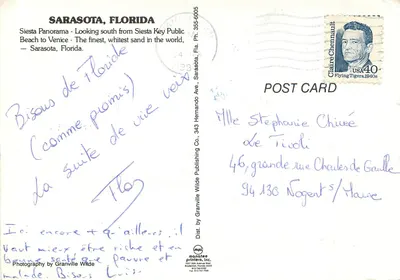 SARASOTA, FLORIDA
Siesta Panorama - Looking south from Siesta Key Public
Beach to Venice - The finest, whitest sand in the world,
— Sarasota, Florida.
Bisous de Floride
(comme promis)
La suite de vive voix
Flo
Ici encore + qu'ailleurs, il
vaut mieux être riche et en
bonne santé que pauvre et
malade. Bisous
Photography by Granville Wilde
Dist. by Granville Wilde Publishing Co., 343 Hernando Ave, Sarasota, Fla. Ph. 355-6005
Claire Chennault
USA 40
Flying Tigers, 1940s
POST CARD
Mlle Stephanie
Le Tivoli
46, grande rue Charles de Gaulle
94 130 Nogent s/ Marne